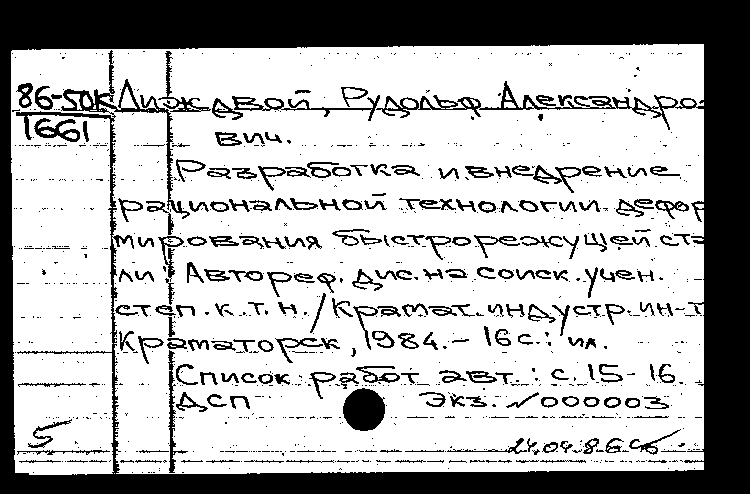 86-50к Лиждвой, Рудольф Александро-
1661 вич.
Разработка и внедрение
рациональной технологии дефор
мирования быстрорежущей ста
ли : Автореф. дис. на соиск. учен.
степ. к. т. н. / Крамат. индустр. ин-т
Краматорск, 1984. - 16 с. : ил.
Список работ авт. : с. 15-16
ДСП Экз. №000003
5